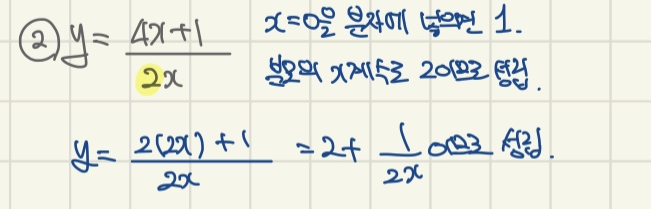 ② y = (4x+1)/(2x) x=0을 분자에 넣으면 1.
분모의 x계수로 2이므로 성립.
y = (2(2x)+1)/(2x) = 2 + 1/(2x) 이므로 성립.